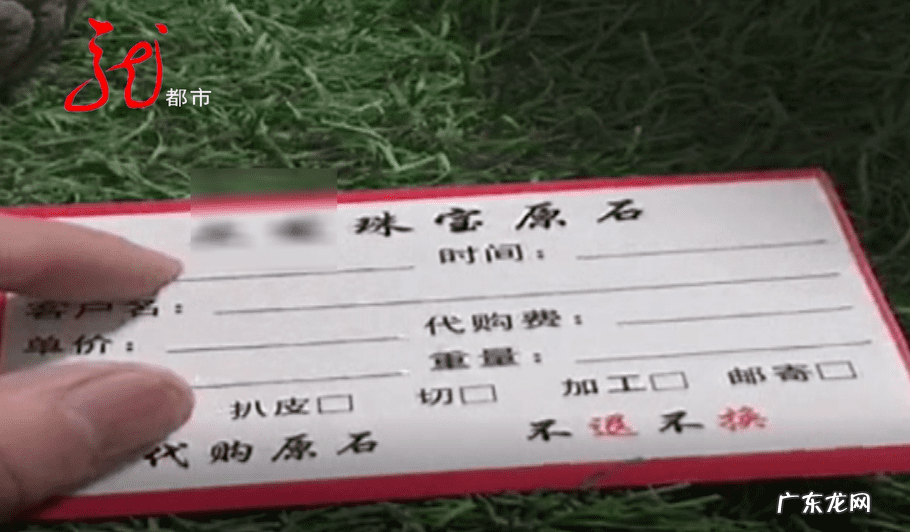 都市
珠宝原石
时间：
客户名：
单价： 代购费：
重量：
扒皮□ 切□ 加工□ 邮寄□
代购原石 不退不换
广东龙网